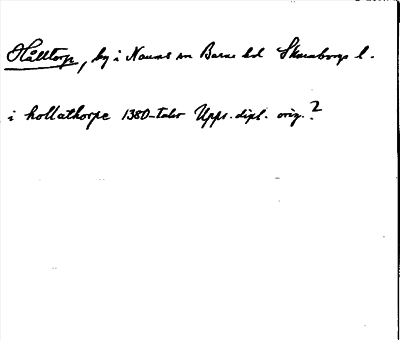 Hålltorp, by i Naums sn Barne hd Skaraborgs l.
i hollathorpe 1380-talet Upps. dipl. orig.?